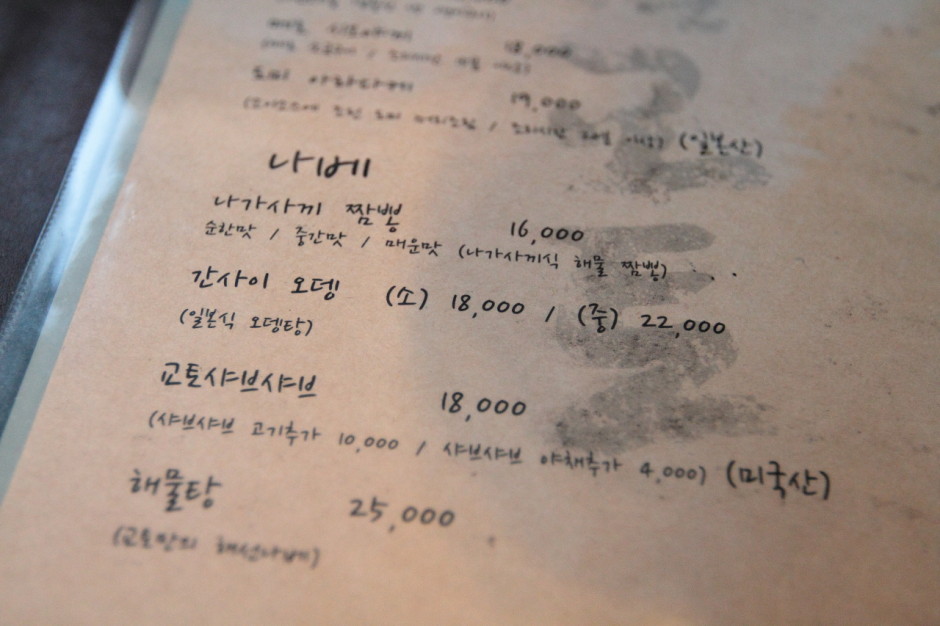 18,000
도미 아라다끼 19,000
(일본산)
나베
나가사끼 짬뽕 16,000
순한맛 / 중간맛 / 매운맛 (나가사끼식 해물 짬뽕)
간사이 오뎅 (소) 18,000 / (중) 22,000
(일본식 오뎅탕)
교토샤브샤브 18,000
(샤브샤브 고기추가 10,000 / 샤브샤브 야채추가 4,000) (미국산)
해물탕 25,000
(교토만의 해선나베)